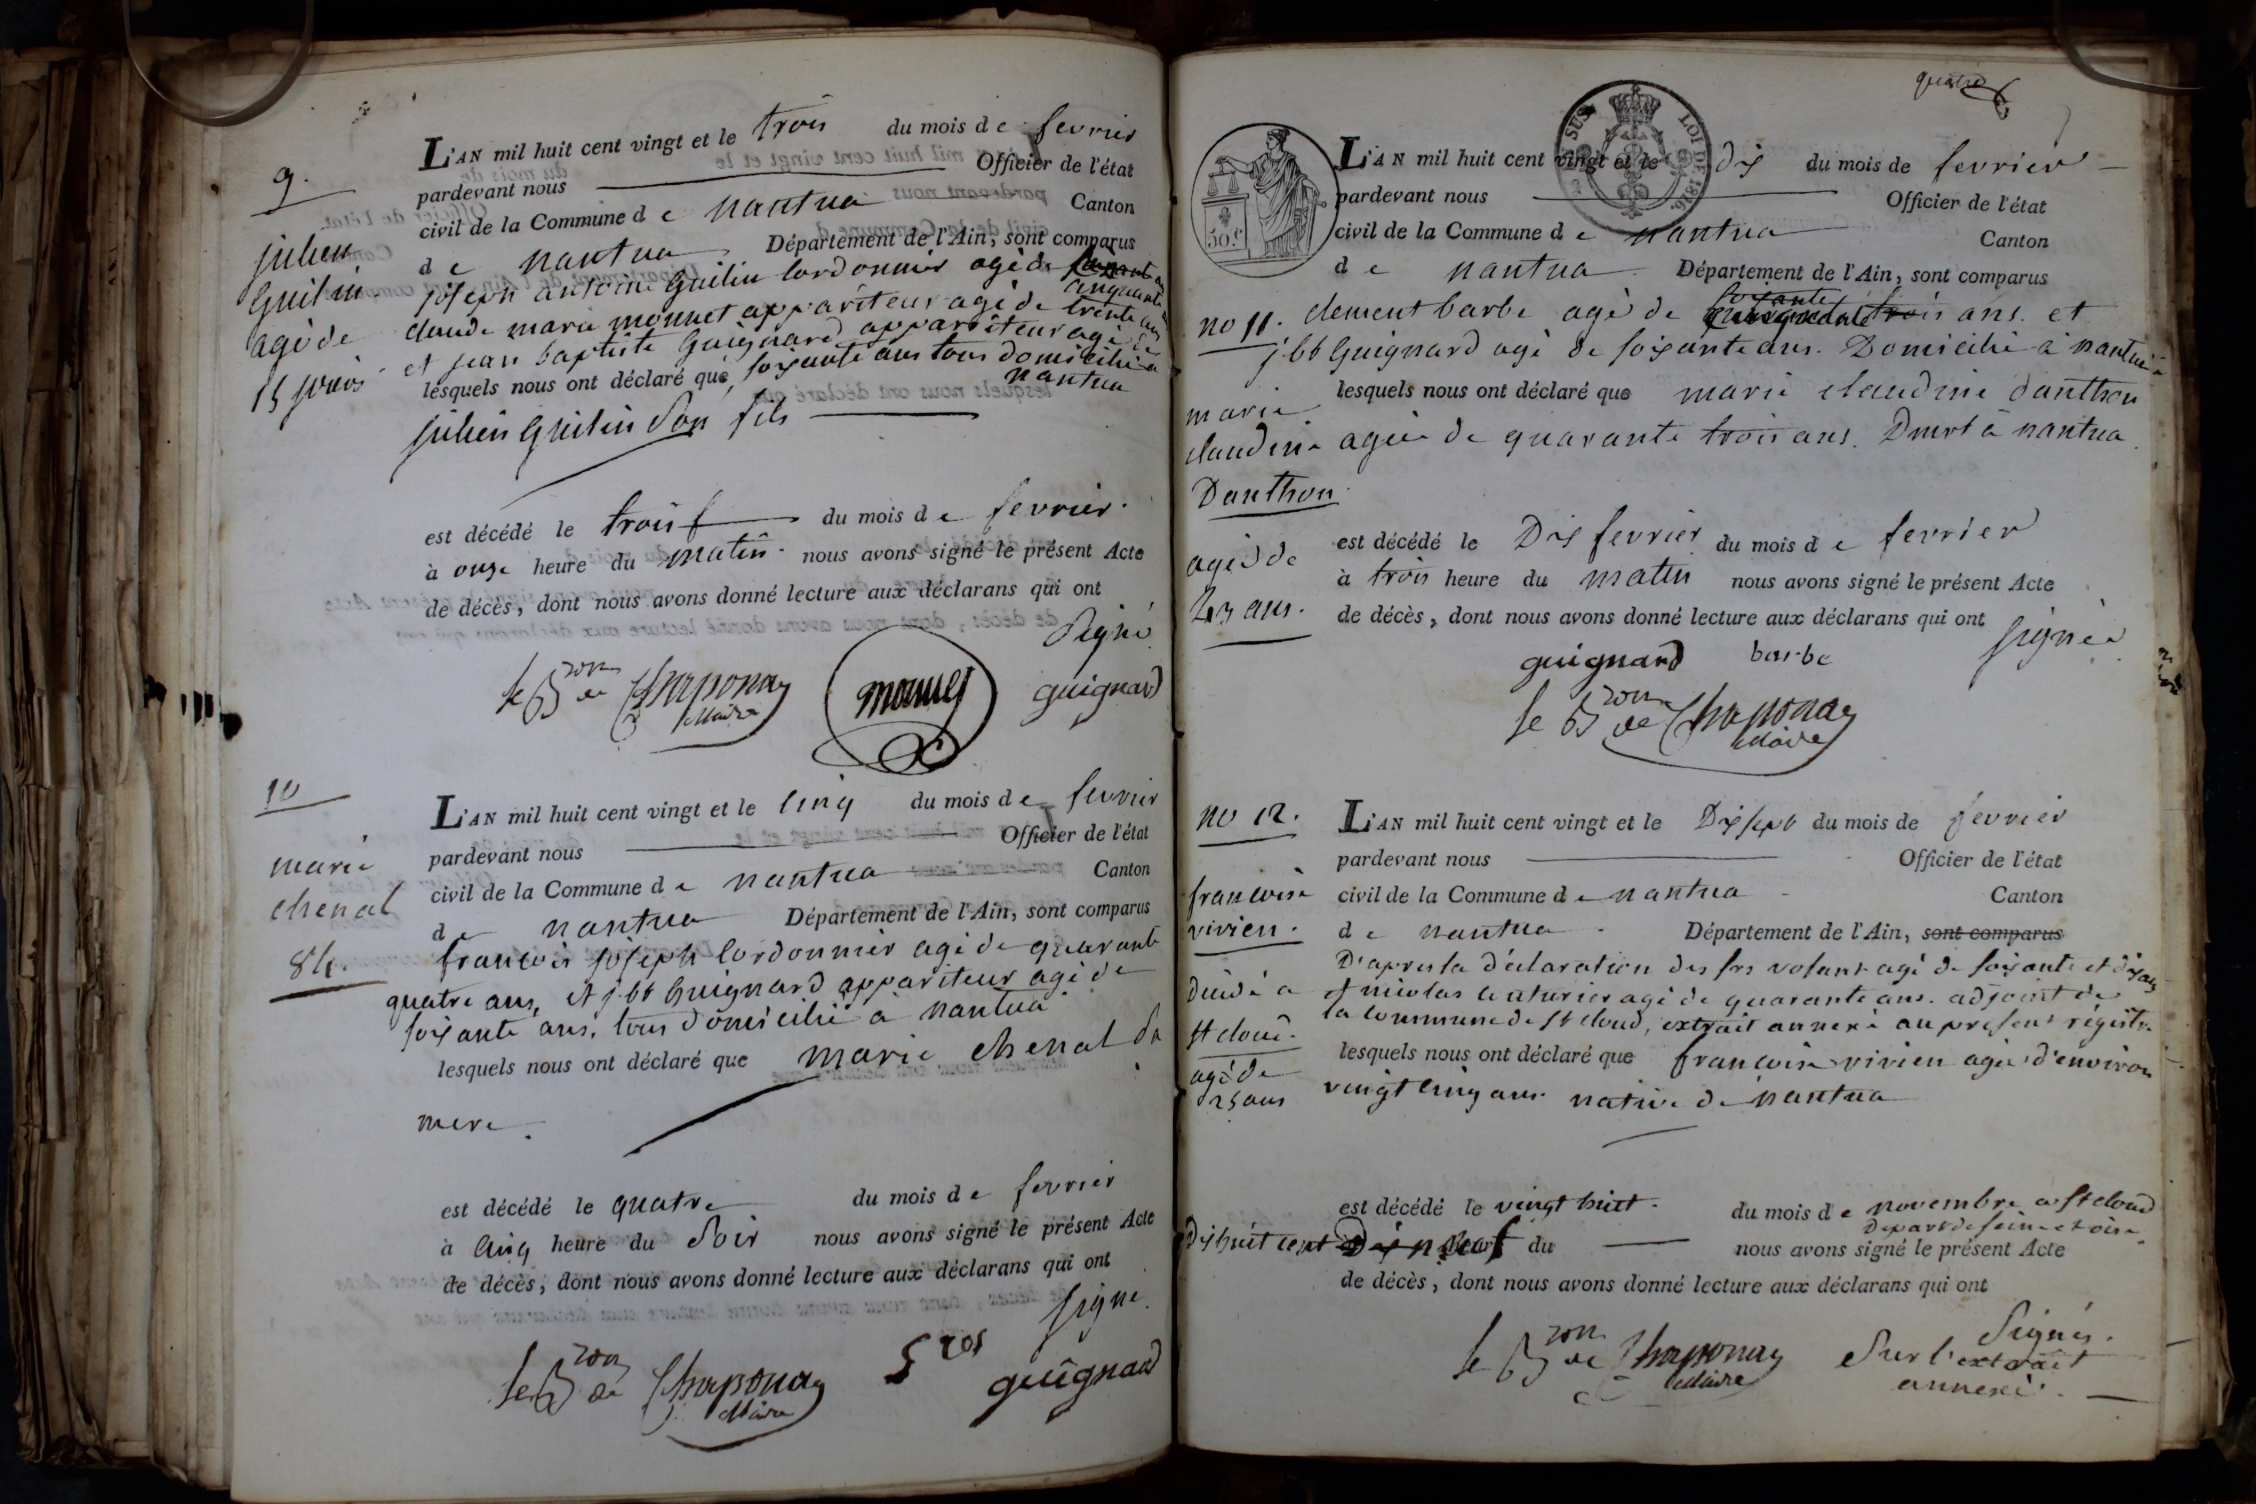 9.
julien
Guilin
agé de
15 jours
L'AN mil huit cent vingt et le trois du mois de fevrier
pardevant nous Officier de l'état
civil de la Commune de nantua Canton
de nantua Département de l'Ain, sont comparus
joseph antoine Guilin Cordonnier agé de cinquante
claude marie monnet appariteur agé de trente ans
et jean baptiste Guignard appariteur agé de
lesquels nous ont déclaré que soixante ans tous domicilié a
nantua
julien Guilin Son fils
est décédé le trois du mois de fevrier.
à onze heure du matin. nous avons signé le présent Acte
de décès, dont nous avons donné lecture aux déclarans qui ont
Signé
le Bon de Chaponay monnet guignard
Maire
10
marie
chenal
84.
L'AN mil huit cent vingt et le Cinq du mois de fevrier
pardevant nous Officier de l'état
civil de la Commune de nantua Canton
de nantua Département de l'Ain, sont comparus
francois joseph Cordonnier agé de quarante
quatre ans, et j. bt Guignard appariteur agé de
soixante ans, tous domicilié a nantua
lesquels nous ont déclaré que marie chenal Sa
mere.
est décédé le quatre du mois de fevrier
à Cinq heure du Soir nous avons signé le présent Acte
de décès, dont nous avons donné lecture aux déclarans qui ont
signe.
le Bon de Chaponay guignard
Maire
quatre
SUS LOI DE 1816.
50.c
no 11.
marie
claudine
Danthon
agé de
43 ans.
L'AN mil huit cent vingt et le dix du mois de fevrier
pardevant nous Officier de l'état
civil de la Commune de nantua Canton
de nantua Département de l'Ain, sont comparus
soixante
clement barbe agé de trois ans. et
j bt Guignard agé de soixante ans. Domicilié à nantua
lesquels nous ont déclaré que marie claudine danthon
agée de quarante trois ans. Dmrt à nantua
est décédé le Dix fevrier du mois de fevrier
à trois heure du matin nous avons signé le présent Acte
de décès, dont nous avons donné lecture aux déclarans qui ont
signée
guignard barbe
le Bon de Chaponay
Maire
no 12.
francoise
vivien.
décédé a
st cloud.
agé de
25 ans
L'AN mil huit cent vingt et le Dix sept du mois de fevrier
pardevant nous Officier de l'état
civil de la Commune de nantua Canton
de nantua Département de l'Ain, sont comparus
D'apres la déclaration des frs volant agé de soixante et dix ans
et nicolas couturier agé de quarante ans. adjoint de
la Commune de st cloud, extrait annexé au present régistre
lesquels nous ont déclaré que francoise vivien agée d'environ
vingt Cinq ans. native de nantua
est décédé le vingt huit. du mois de novembre a st cloud
Depart de seine et oise
Dix huit cent Dix neuf heure du nous avons signé le présent Acte
de décès, dont nous avons donné lecture aux déclarans qui ont
Signés.
le Bon de Chaponay Sur l'extrait
Maire annexé.